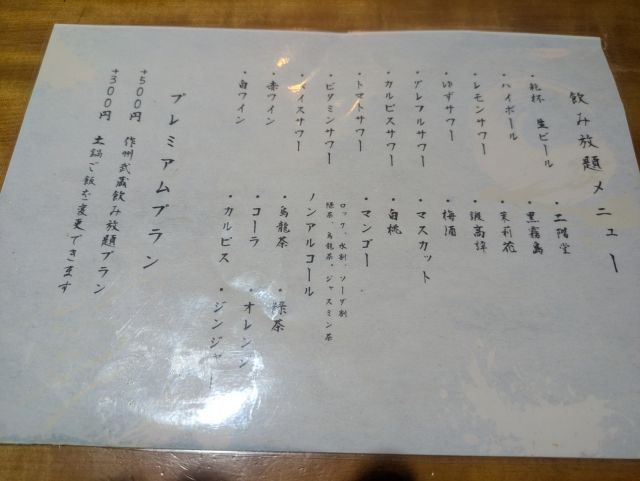 飲み放題メニュー
・乾杯 生ビール
・ハイボール
・レモンサワー
・ゆずサワー
・グレフルサワー
・カルピスサワー
・トマトサワー
・ビタミンサワー
・バイスサワー
・赤ワイン
・白ワイン
・二階堂
・黒霧島
・茉莉花
・銀高譚
・梅酒
・マスカット
・白桃
・マンゴー
ロック、水割、ソーダ割
緑茶、烏龍茶、ジャスミン茶
ノンアルコール
・烏龍茶 ・緑茶
・コーラ ・オレンジ
・カルピス ・ジンジャー
プレミアムプラン
+500円 作州武蔵飲み放題プラン
+300円 土鍋ご飯を変更できます